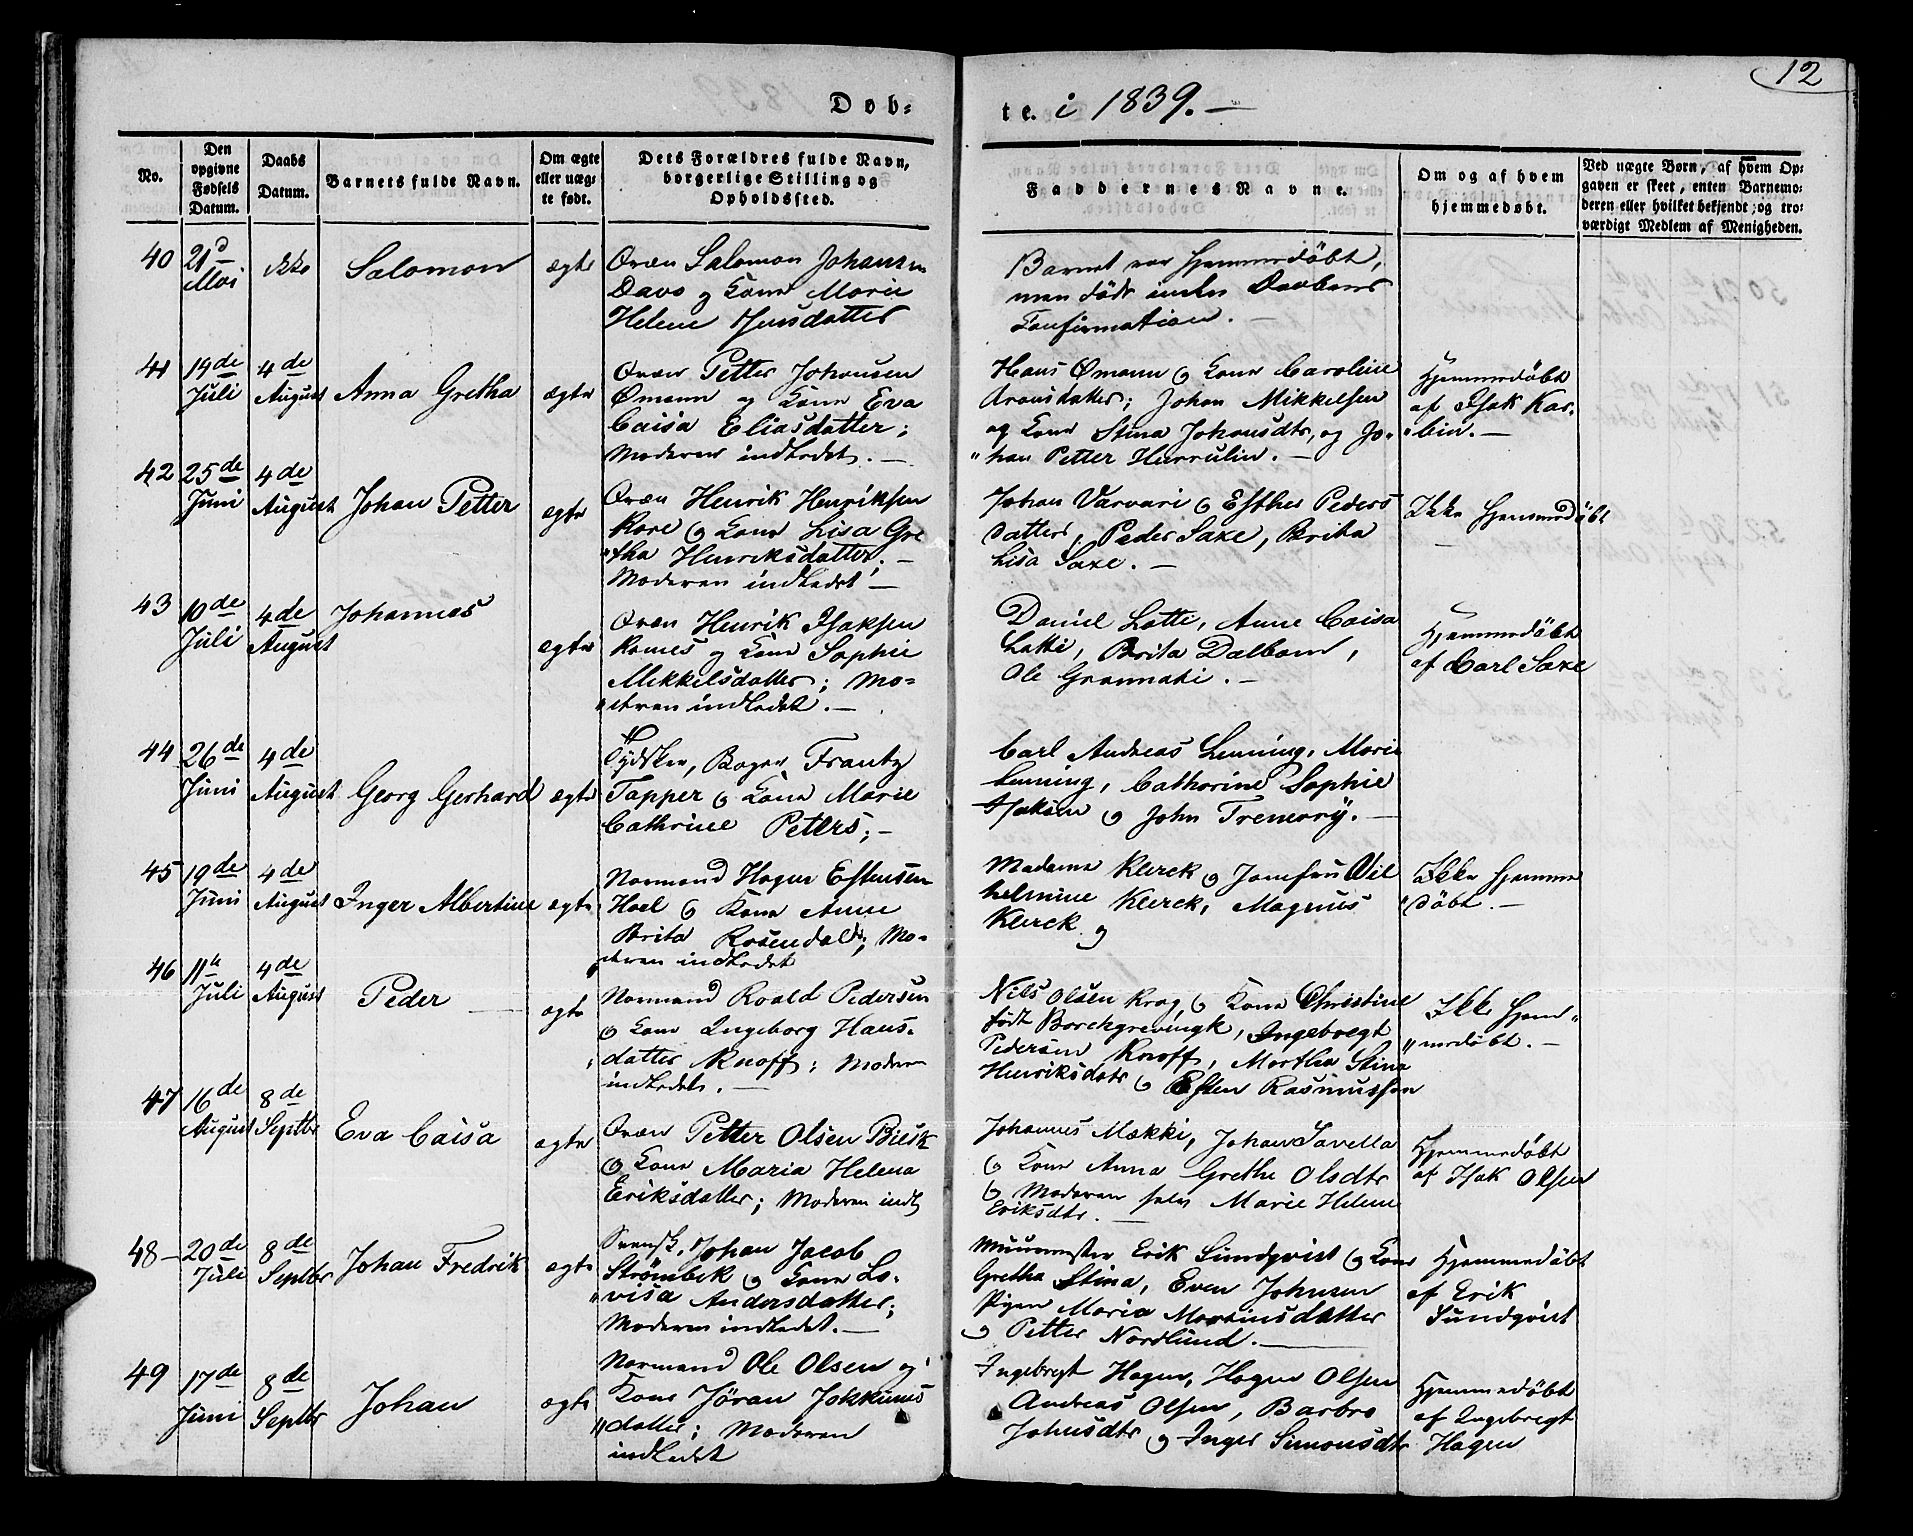 12
Døb-
te. i 1839. —
No.
Den opgivne Fødsels Datum.
Daabs Datum.
Barnets fulde Navn.
Om ægte eller uægte født.
Dets Forældres fulde Navn, borgerlige Stilling og Opholdssted.
Faddernes Navne.
Om og af hvem hjemmedøbt.
Ved uægte Børn, af hvem Opgaven er skeet, enten Barnemoderen eller hvilket bekjendt, og troværdigt Medlem af Menigheden.
40
21d Mai
ikke
Salomon
ægte
Qvæn Salomon Johansen
Davo og Kone Marie
Helene Jensdatter
Barnet var hjemmedøbt,
men døde inden Daabens
Confirmation.
41
14de Juli
4de August
Anna Gretha
ægte
Qvæn Petter Johansen
Ømann og Kone Eva
Caisa Eliasdatter;
Moderen indledet. —
Hans Ømann og Kone Caroline
Aronsdatter; Johan Mikkelsen
og Kone Stina Johansdtr, og Jo-
han Petter Hurrulin. —
Hjemmedøbt
af Isak Kar-
bin. —
42
25de Juni
4de August
Johan Petter
ægte
Qvæn Henrik Henriksen
Kore og Kone Lisa Gre
tha Henriksdatter. —
Moderen indledet —
Johan Varvari og Esther Peders
datter, Peder Saxe, Brita
Lisa Saxe. —
Ikke hjemmedøbt
—
43
10de Juli
4de August
Johannes
ægte
Qvæn Henrik Isaksen
Romes og Kone Sophie
Mikkelsdatter; Mo-
deren indledet. —
Daniel Latti, Anne Caisa
Latti, Brita Dalbom,
Ole Grannati. —
Hjemmedøbt
af Carl Saxe
44
26de Juni
4de August
Georg Gerhard
ægte
Tydsker, Bager Frantz
Tapper og Kone Marie
Cathrine Peters; —
Carl Andreas Lenning, Marie
Lenning, Cathorine Sophie
Isaksen og John Tremory. —
45
19de Juni
4de August
Inger Albertine
ægte
Normand Hagen Estensen
Hoel og Kone Anne
Brita Rosendald; Mo-
deren indledet
Madame Klerck og Jomfru Wil
helmine Klerck, Magnus
Klerck og
Ikke hjemme
døbt. —
46
11te Juli
4de August
Peder —
ægte
Normand Roald Pedersen
og Kone Ingeborg Hans-
datter Knoff; Moderen
indledet. —
Nils Olsen Krog, og Kone Christine
født Borchgrevingk, Ingebregt
Pedersen Knoff, Martha Stina
Henriksdatr og Esten Rasmussen
Ikke hjem
medøbt. —
47
16de August
8de Septbr
Eva Caisa
ægte
Qvæn Petter Olsen Biesk
og Kone Maria Helena
Eriksdatter; Moderen indl
Johannes Mækki, Johan Savella
og Kone Anna Grethe Olsdtr
og Moderen selv Marie Helene
Eriksdtr. —
Hjemmedøbt
af Isak Olsen
48 —
20de Juli
8de Septbr
Johan Fredrik
ægte
Svensk, Johan Jacob
Strömbek og Kone Lo-
visa Andersdatter;
Moderen indledet. —
Muurmester Erik Sundqvist og Kone
Gretha Stina, Even Johnsen
Pigen Maria Mortinsdatter
og Petter Nordlund. —
Hjemmedøbt
af Erik
Sundqvist
49
17de Juni
8de Septbr
Johan
ægte
Normand Ole Olsen og
Kone Jöran Jokkums
datter; Moderen
indledet
Ingebregt Hagen, Hagen Olsen
Andreas Olsen, Barbro
Johnsdtr og Inger Simonsdtr
Hjemmedøbt
af Ingebregt
Hagen